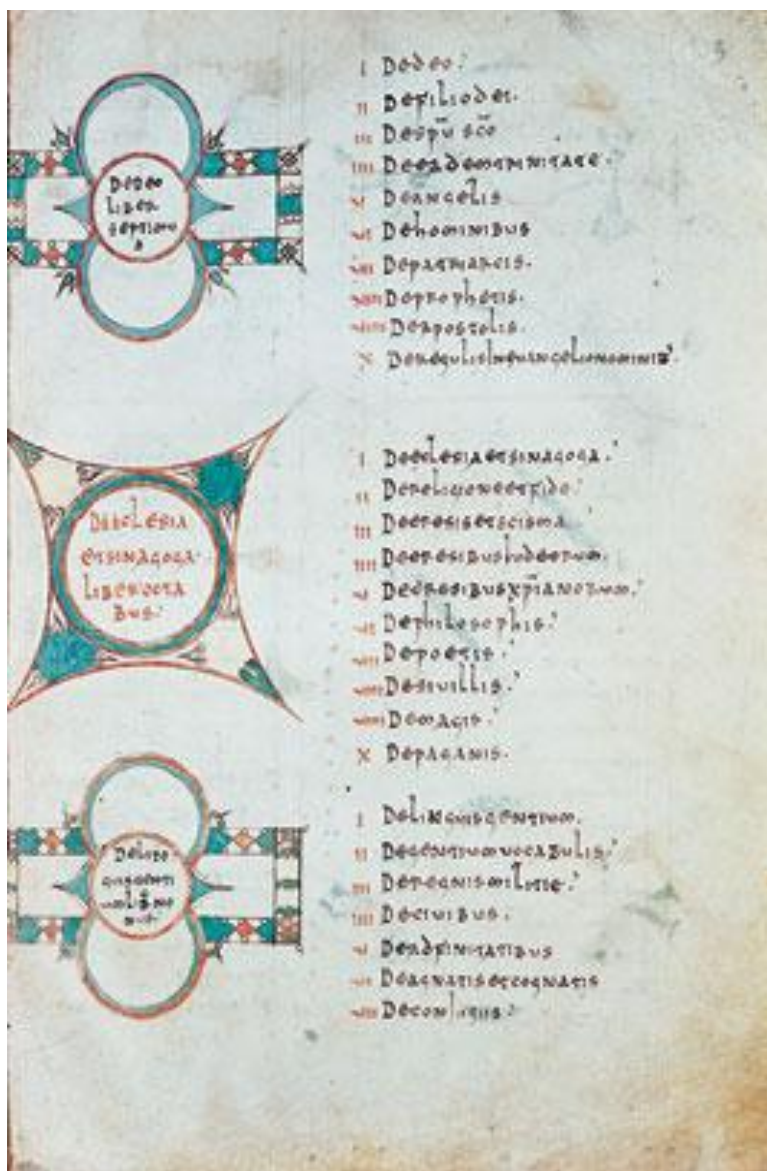 De deo
liber
septimu
s
I De deo.
II De filio dei.
III De spu sco
IIII De eadem trinitate.
V De angelis
VI De hominibus
VII De patriarcis.
VIII De prophetis.
VIIII De apostolis.
X De requlis in evangelio nominib'.
De eclesia
et sinagoga
liber octa
bus.
I De eclesia et sinagoga.
II De religione et fide.
III De eresis et scisma.
IIII De eresibus iudeorum.
V De eresibus xpianorum.
VI De philosophis.
VII De poetis.
VIII De sivillis.
VIIII De magis.
X De paganis.
De lin
guis genti
um lib no
nus.
I De linguis gentium.
II De gentium vocabulis.
III De regnis militie.
IIII De civibus.
V De adfinitatibus
VI De agnatis et cognatis
VII De coniugiis.